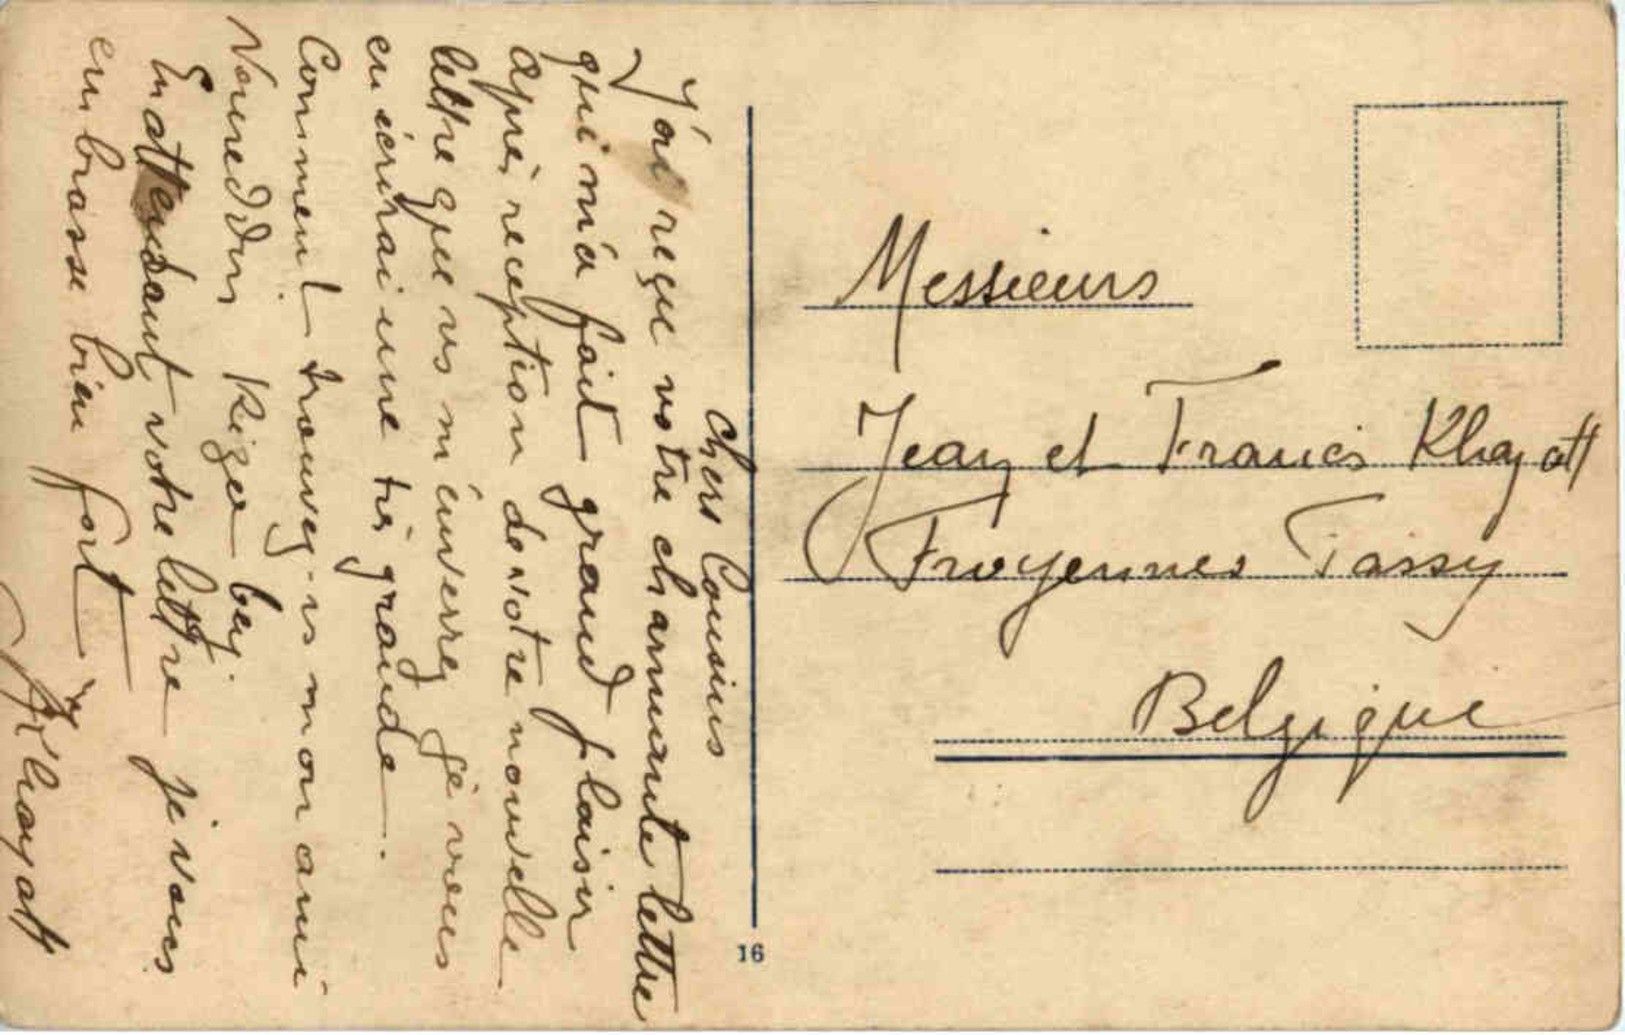 Chers Cousins
J'ai reçu votre charmante lettre
qui m'a fait grand plaisir
après reception de votre nouvelle
lettre que vs m'enverrez je vous
en écrirai une très grande.
Comment trouvez-vs mon ami
Noureddin Rizga bey.
En attendant votre lettre je vous
embrasse bien fort
Khayatt
16
Messieurs
Jean et Francis Khayatt
Froyennes Passy
Belgique